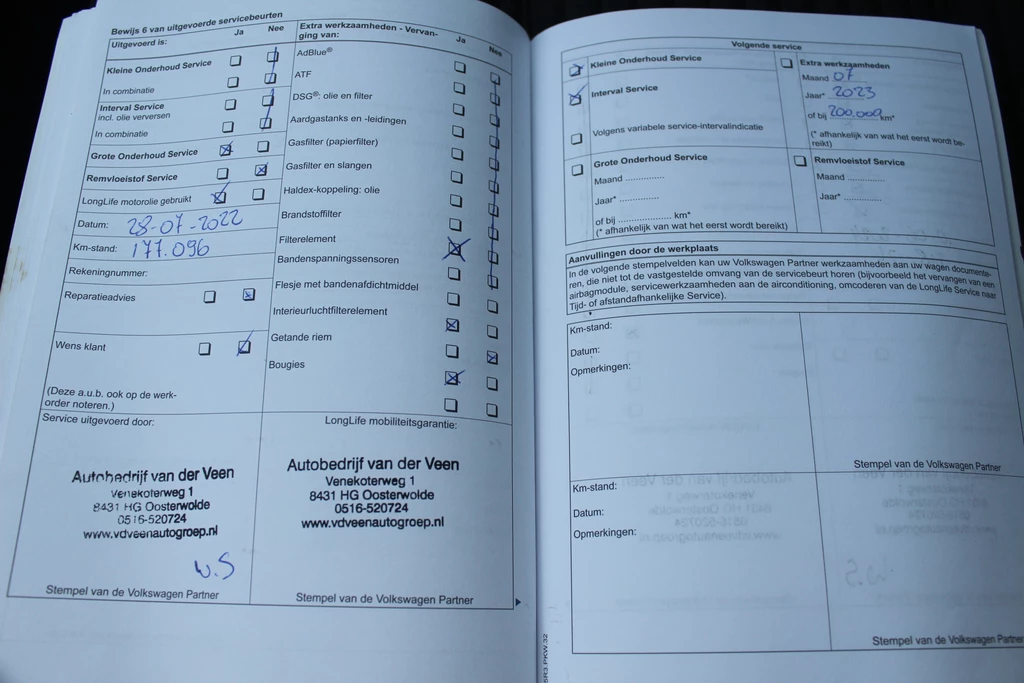 Bewijs 6 van uitgevoerde servicebeurten
Uitgevoerd is:
Ja
Nee
Kleine Onderhoud Service
In combinatie
Interval Service
incl. olie verversen
In combinatie
Grote Onderhoud Service
Remvloeistof Service
LongLife motorolie gebruikt
Datum: 28-07-2022
Km-stand: 177.096
Rekeningnummer:
Reparatieadvies
Wens klant
(Deze a.u.b. ook op de werk-
order noteren.)
Extra werkzaamheden - Vervan-
ging van:
Ja
Nee
AdBlue®
ATF
DSG®: olie en filter
Aardgastanks en -leidingen
Gasfilter (papierfilter)
Gasfilter en slangen
Haldex-koppeling: olie
Brandstoffilter
Filterelement
Bandenspanningssensoren
Flesje met bandenafdichtmiddel
Interieurluchtfilterelement
Getande riem
Bougies
Service uitgevoerd door:
Autobedrijf van der Veen
Venekoterweg 1
8431 HG Oosterwolde
0516-520724
www.vdveenautogroep.nl
W.S
Stempel van de Volkswagen Partner
LongLife mobiliteitsgarantie:
Autobedrijf van der Veen
Venekoterweg 1
8431 HG Oosterwolde
0516-520724
www.vdveenautogroep.nl
Stempel van de Volkswagen Partner
Volgende service
Kleine Onderhoud Service
Interval Service
Volgens variabele service-intervalindicatie
Extra werkzaamheden
Maand 07
Jaar* 2023
of bij 200.000 km*
(* afhankelijk van wat het eerst wordt be-
reikt)
Grote Onderhoud Service
Maand ...............
Jaar* ...............
of bij ..................... km*
(* afhankelijk van wat het eerst wordt bereikt)
Remvloeistof Service
Maand ..............
Jaar* ..............
Aanvullingen door de werkplaats
In de volgende stempelvelden kan uw Volkswagen Partner werkzaamheden aan uw wagen documente-
ren, die niet tot de vastgestelde omvang van de servicebeurt horen (bijvoorbeeld het vervangen van een
airbagmodule, servicewerkzaamheden aan de airconditioning, omcoderen van de LongLife Service naar
Tijd- of afstandafhankelijke Service).
Km-stand:
Datum:
Opmerkingen:
Stempel van de Volkswagen Partner
Km-stand:
Datum:
Opmerkingen:
Stempel van de Volkswagen Partner
5R3.PKW.32